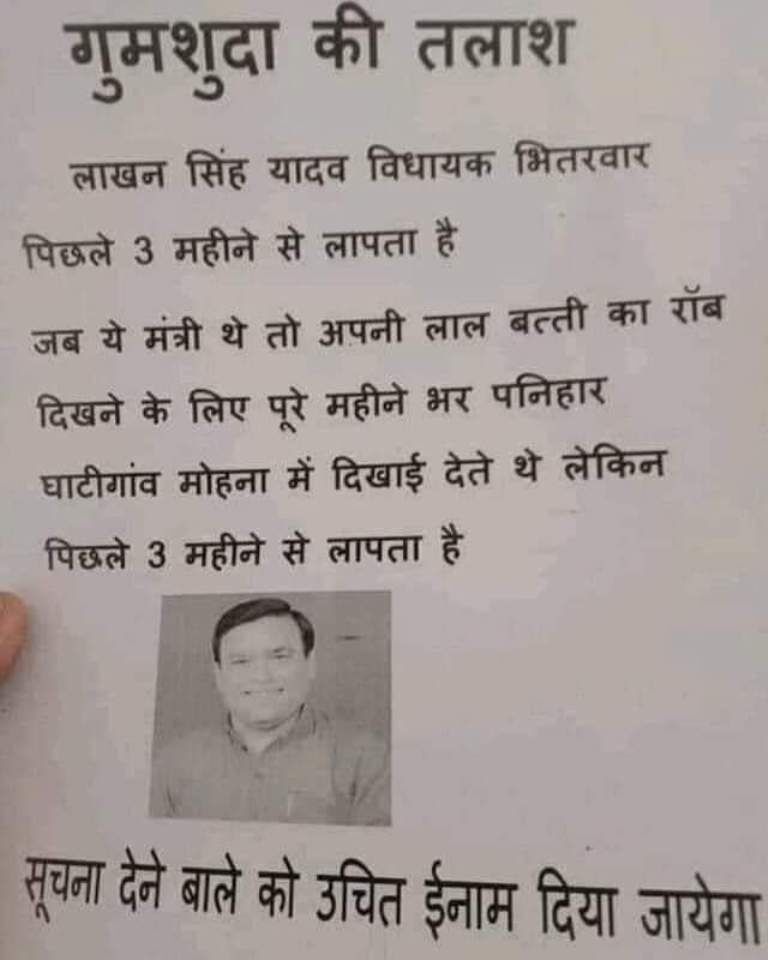 गुमशुदा की तलाश
लाखन सिंह यादव विधायक भितरवार
पिछले 3 महीने से लापता है
जब ये मंत्री थे तो अपनी लाल बत्ती का रॉब
दिखने के लिए पूरे महीने भर पनिहार
घाटीगांव मोहना में दिखाई देते थे लेकिन
पिछले 3 महीने से लापता है
सूचना देने बाले को उचित ईनाम दिया जायेगा